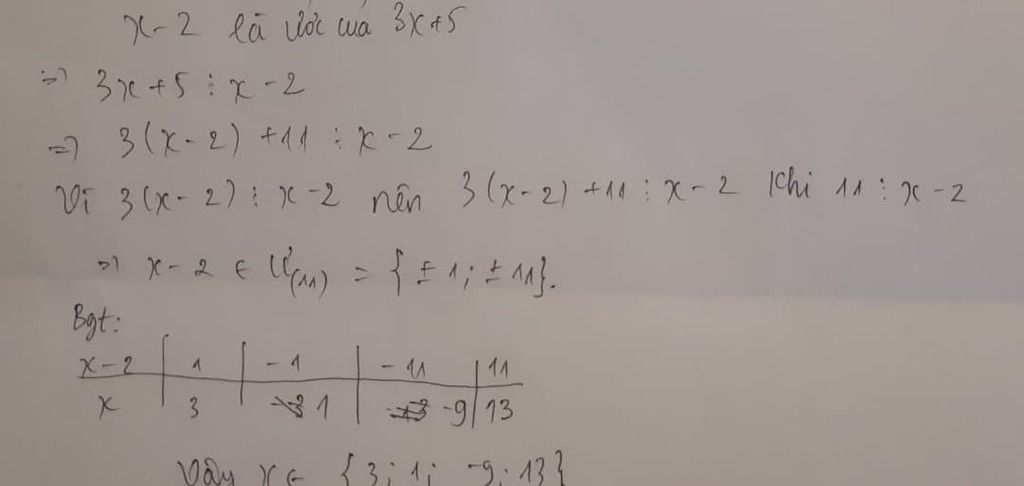 x-2 là ước của 3x+5
=> 3x+5 ⋮ x-2
=> 3(x-2) +11 ⋮ x-2
Vì 3(x-2) ⋮ x-2 nên 3(x-2) +11 ⋮ x-2 khi 11 ⋮ x-2
=> x-2 ∈ Ư(11) = {±1; ±11}.
Bgt:
x-2 | 1 | -1 | -11 | 11
x | 3 | 1 | -9 | 13
Vậy x ∈ {3; 1; -9; 13}